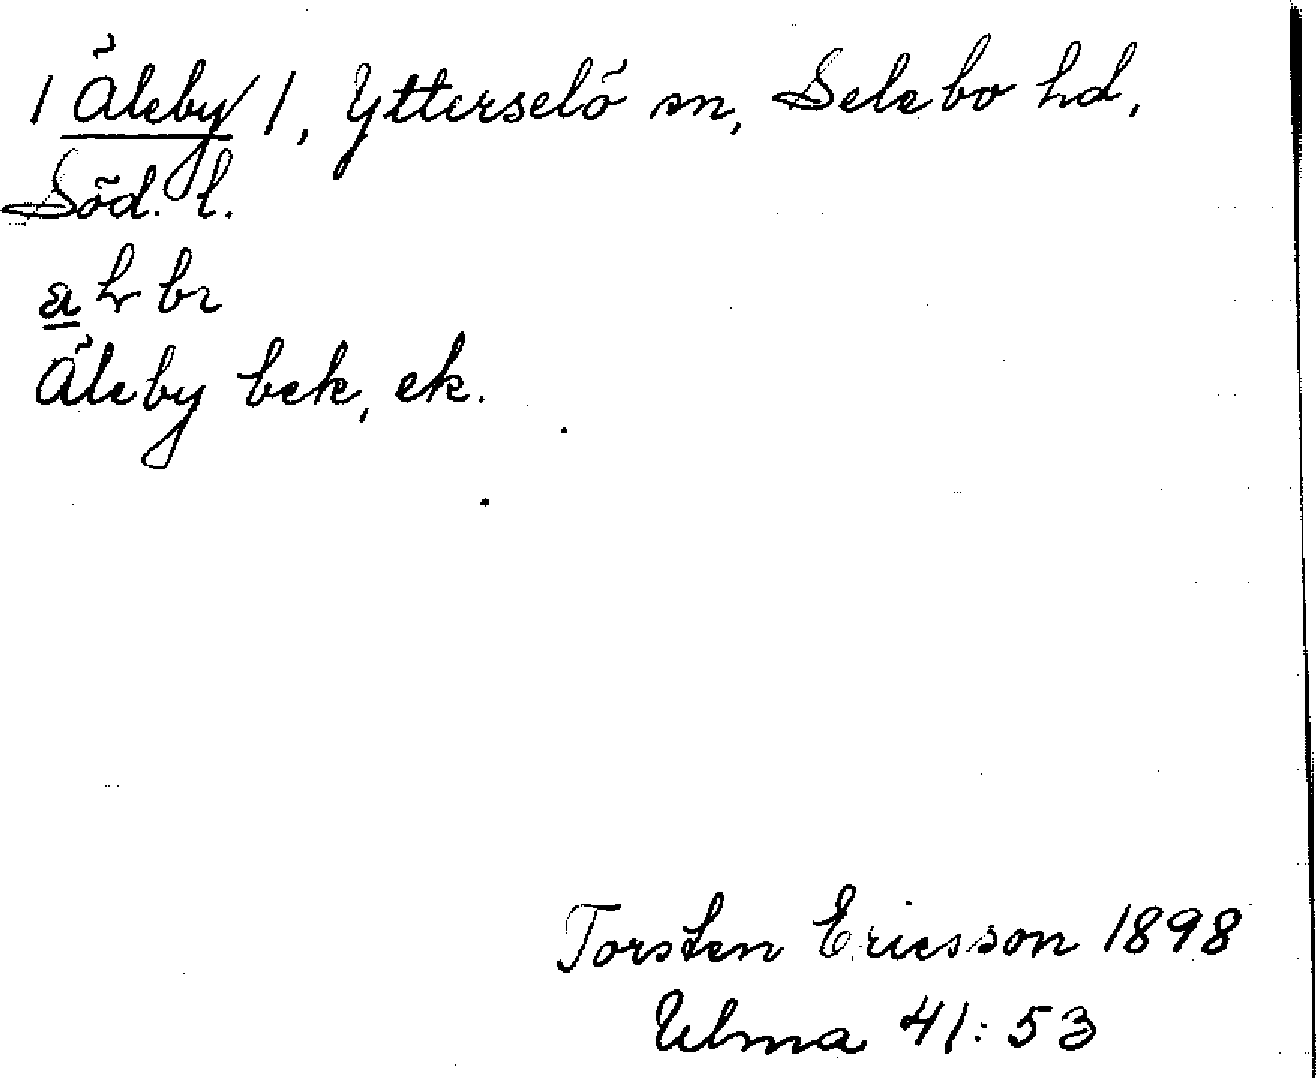 / Åleby /, Ytterselö sn, Selebo hd,
Söd. l.
Åleby bek, ek.
Torsten Ericsson 1898
Ulma 41:53